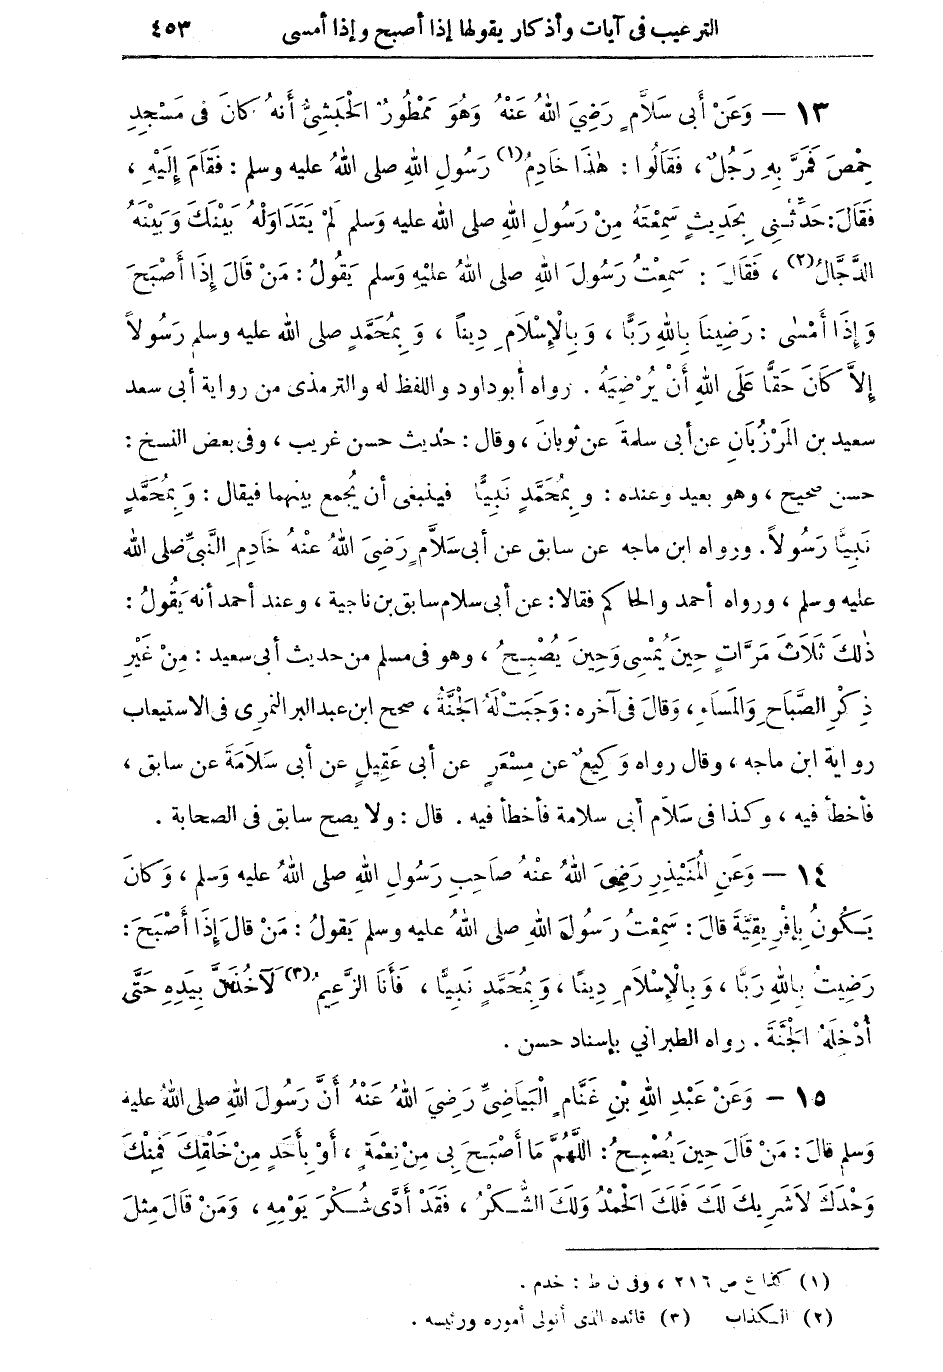 الترغيب فى آيات وأذكار يقولها إذا أصبح وإذا أمسى ٤٥٣
١٣ — وَعَنْ أَبى سَلاَّمٍ رَضِيَ اللهُ عَنْهُ وَهُوَ مَمْطُورٌ الْحَبَشِىُّ أَنهُ كانَ فى مَسْجِدِ
حِمْصَ فَمَرَّ بِهِ رَجُلٌ، فَقَالُوا: هٰذَا خَادِمُ(١) رَسُولِ اللهِ صلى اللهُ عليه وسلم: فَقَامَ إِلَيْهِ،
فَقَالَ: حَدِّثْنِى بِحَدِيثٍ سَمِعْتَهُ مِنْ رَسُولِ اللهِ صلى الله عليه وسلم لَمْ يَتَدَاوَلْهُ بَيْنَكَ وَبَيْنَهُ
الدَّجَّالُ(٢)، فَقَالَ: سَمِعْتُ رَسُولَ اللهِ صلى اللهُ عليْهِ وَسلم يَقُولُ: مَنْ قَالَ إِذَا أَصْبَحَ
وَإِذَا أَمْسٰى: رَضِينَا بِاللهِ رَبًّا، وَبِالْإِسْلاَمِ دِيناً، وَبِمُحَمَّدٍ صلى الله عليه وسلم رَسُولاً
إِلاَّ كَانَ حَقًّا عَلَى اللهِ أَنْ يُرْضِيَهُ. رواه أبو داود واللفظ له والترمذى من رواية أبى سعد
سعيد بن المَرْزُبَانِ عن أبى سلمةَ عن ثوبانَ، وقال: حديث حسن غريب، وفى بعض النسخ:
حسن صحيح، وهو بعيد وعنده: وبِمُحَمَّدٍ نَبِيًّا فينبغى أن يُجمع بينهما فيقال: وَبِمُحَمَّدٍ
نَبِيًّا رَسُولاً. ورواه ابن ماجه عن سابق عن أبى سَلاَّمٍ رَضِىَ اللهُ عنْهُ خَادِمِ النَّبىِّ صلى الله
عليه وسلم، ورواه أحمد والحاكم فقالا: عن أبى سلام سابق بن ناجية، وعند أحمد أنه يَقُولُ:
ذٰلكَ ثَلَاثَ مَرَّاتٍ حِينَ يُمْسِى وَحِينَ يُصْبِحُ، وهو فى مسلم من حديث أبى سعيد: مِنْ غَيْرِ
ذِكْرِ الصَّبَاحِ وَالمَسَاءِ، وَقالَ فى آخره: وَجَبَتْ لَهُ الْجَنَّةُ، صحح ابن عبد البر النمرى فى الاستيعاب
رواية ابن ماجه، وقال رواه وَكِيعٌ عن مِسْعَرٍ عن أبى عَقِيلٍ عن أبى سَلَامَةَ عن سابق،
فأخطأ فيه، وكذا فى سَلَّام أبى سلامة فأخطأ فيه. قال: ولا يصح سابق فى الصحابة.
١٤ — وَعَنِ المُنَيْذِرِ رَضِىَ اللهُ عنْهُ صَاحِبِ رَسُولِ اللهِ صلى اللهُ عليه وَسلم، وَكانَ
يَكُونُ بِإِفْرِيقِيَّةَ قالَ: سَمِعْتُ رَسُولَ اللهِ صلى اللهُ عليه وسلم يَقُولُ: مَنْ قالَ إِذَا أَصْبَحَ:
رَضِيتُ بِاللهِ رَبًّا، وَبِالْإِسْلَامِ دِينًا، وَبِمُحَمَّدٍ نَبِيًّا، فَأَنَا الزَّعِيمُ(٣) لَآخُذَنَّ بِيَدِهِ حَتَّى
أُدْخِلَهُ الْجَنَّةَ. رواه الطبرانى بإسناد حسن.
١٥ — وَعَنْ عَبْدِ اللهِ بْنِ غَنَّامٍ الْبَيَاضِىِّ رَضِيَ اللهُ عَنْهُ أَنَّ رَسُولَ اللهِ صلى اللهُ عليه
وَسلم قالَ: مَنْ قَالَ حِينَ يُصْبِحُ: اللَّهُمَّ مَا أَصْبَحَ بِى مِنْ نِعْمَةٍ، أَوْ بِأَحَدٍ مِنْ خَلْقِكَ فَمِنْكَ
وَحْدَكَ لاَ شَرِيكَ لَكَ فَلَكَ الْحَمْدُ وَلَكَ الشُّكْرُ، فَقَدْ أَدَّى شُكْرَ يَوْمِهِ، وَمَنْ قَالَ مِثْلَ
(١) كذا ع ص ٢١٦، وفى ن ط: خدم.
(٢) الكذاب (٣) قائده الذى أتولى أموره ورئيسه.